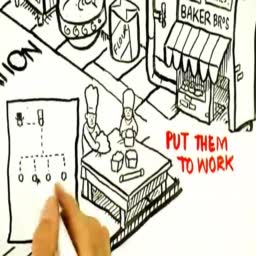 BAKER BROS
FLOUR
PUT THEM
TO WORK